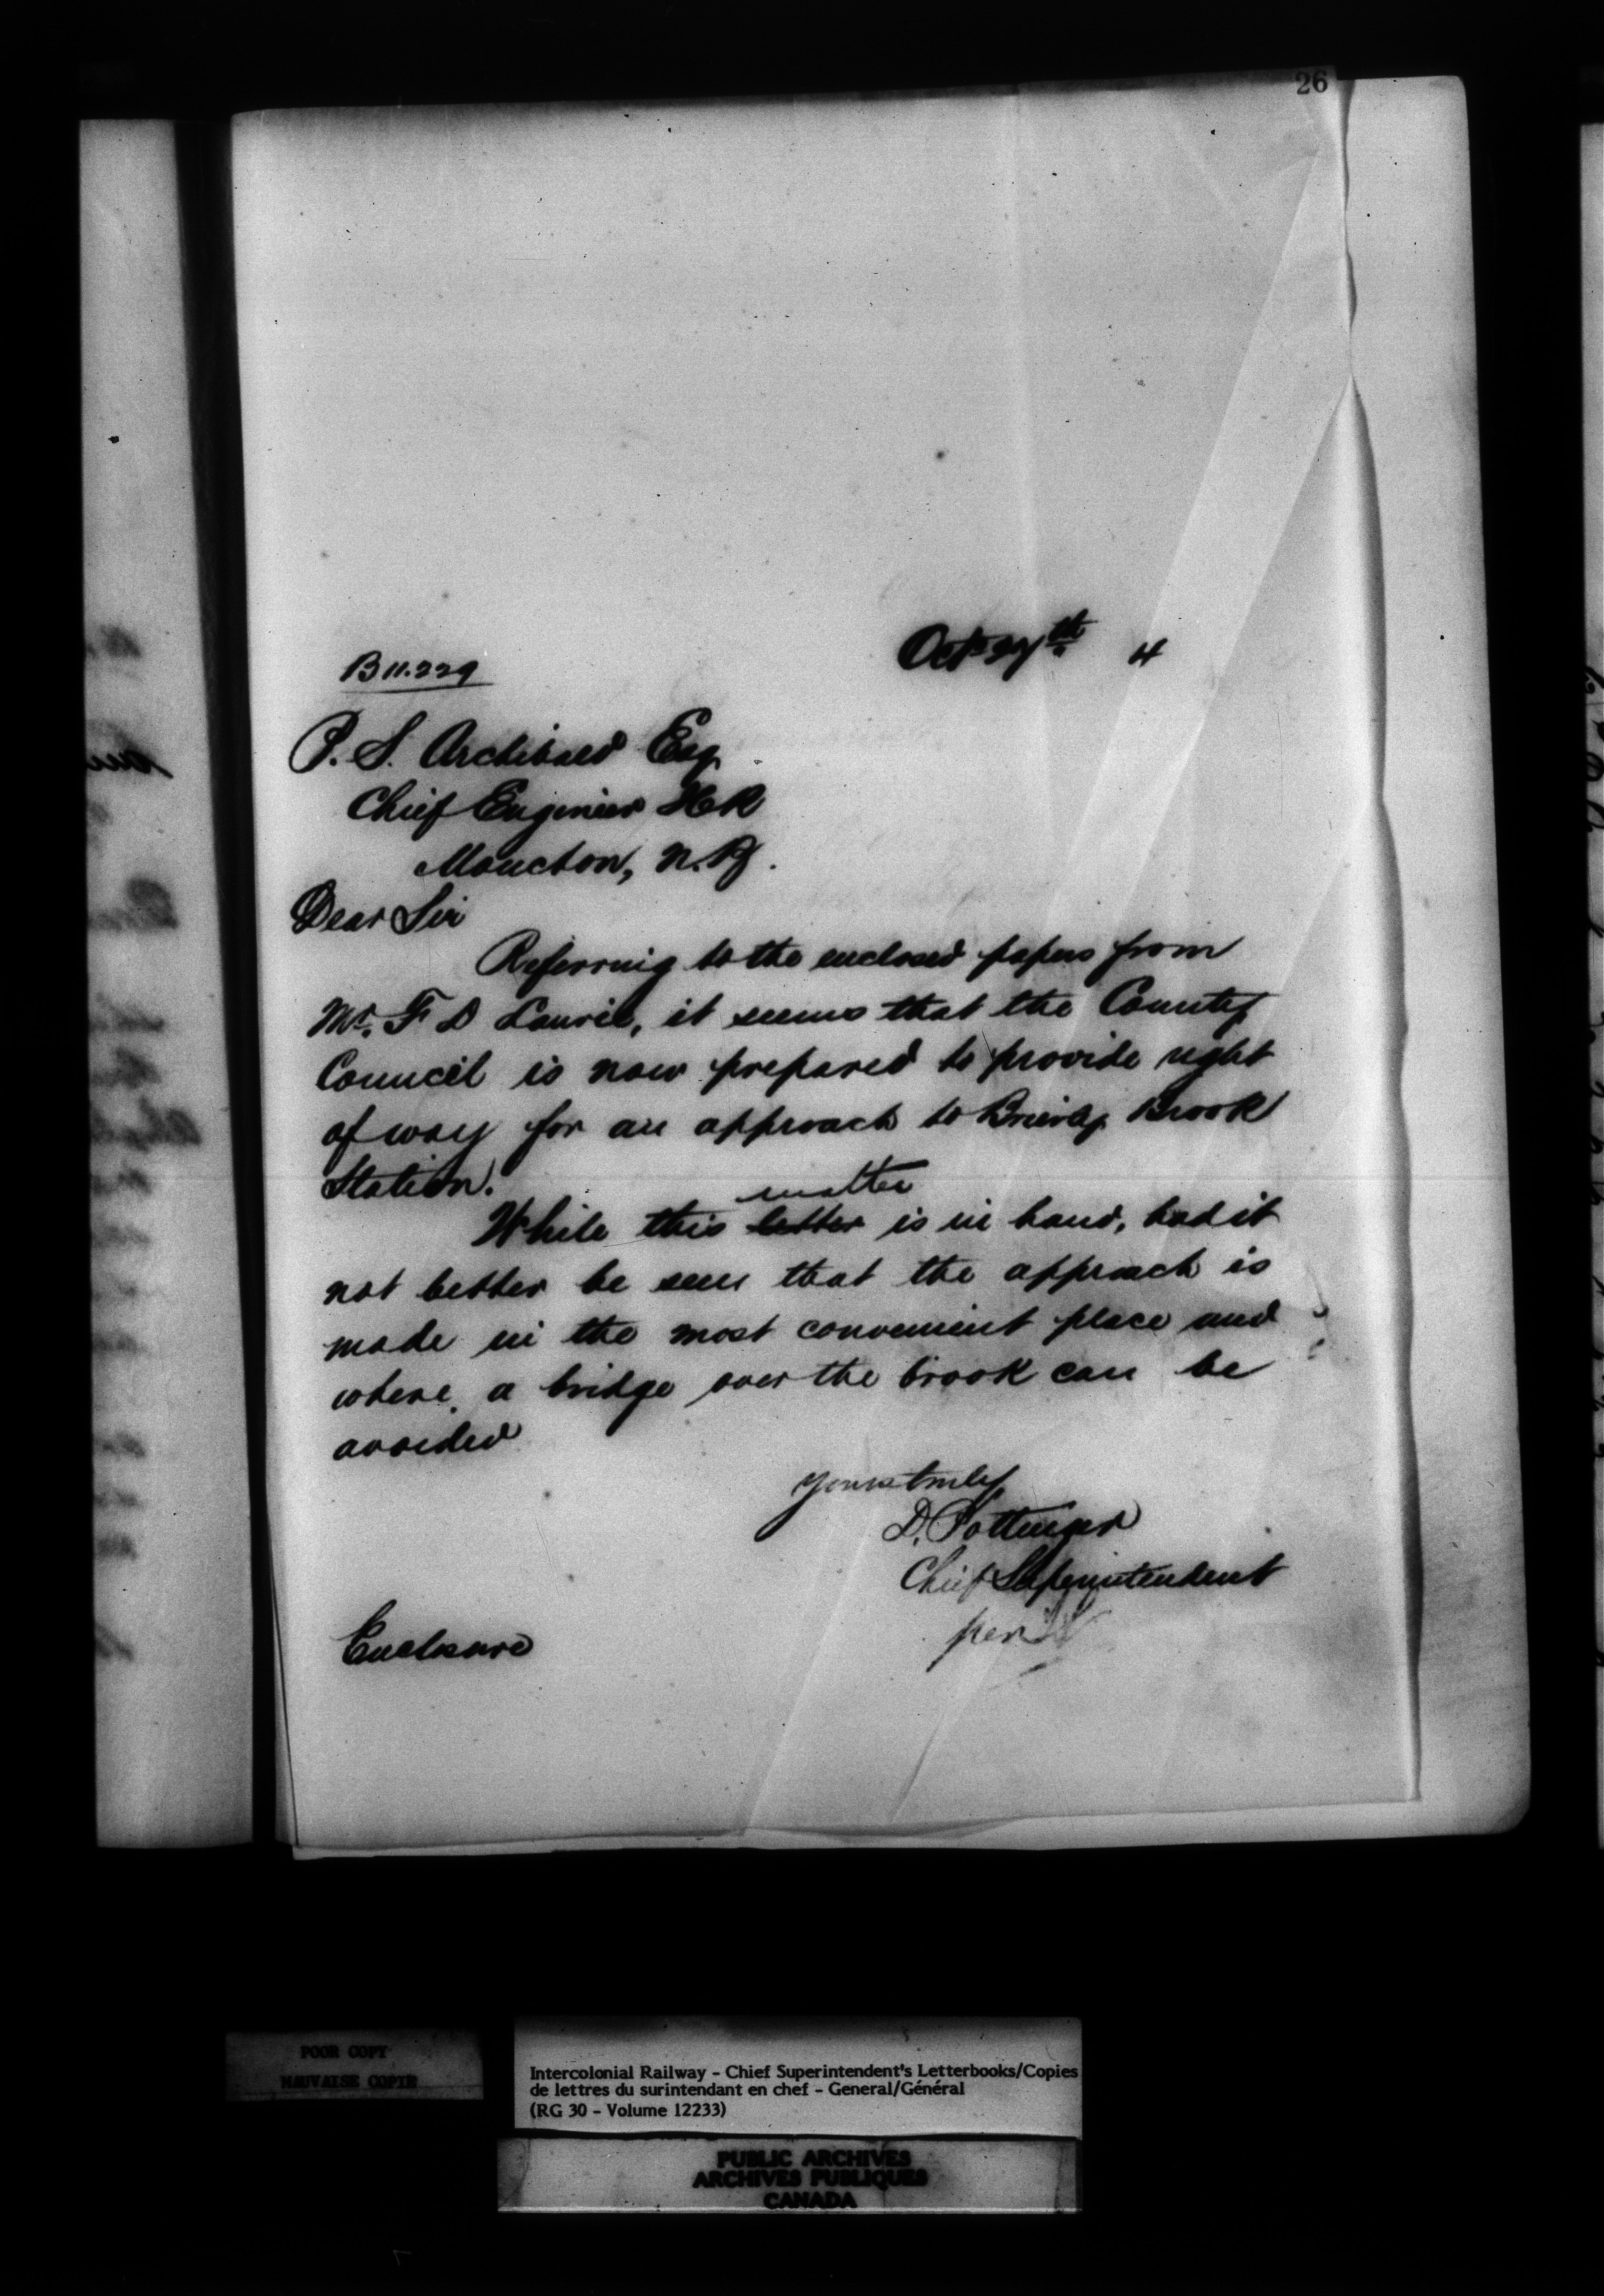 26
Oct 29th 4
B 11.229
P. S. Archibald Esq
Chief Engineer ICR
Moncton, N.B.
Dear Sir
Referring to the enclosed papers from
Mr. F D Laurie, it seems that the County
Council is now prepared to provide right
of way for an approach to Brierly Brook
Station.
matter
While this letter is in hand, had it
not better be seen that the approach is
made in the most convenient place and
where a bridge over the brook can be
avoided
Yours truly
D. Pottinger
Chief Superintendent
per
Enclosure
POOR COPY
MAUVAISE COPIE
Intercolonial Railway - Chief Superintendent's Letterbooks/Copies
de lettres du surintendant en chef - General/Général
(RG 30 - Volume 12233)
PUBLIC ARCHIVES
ARCHIVES PUBLIQUES
CANADA